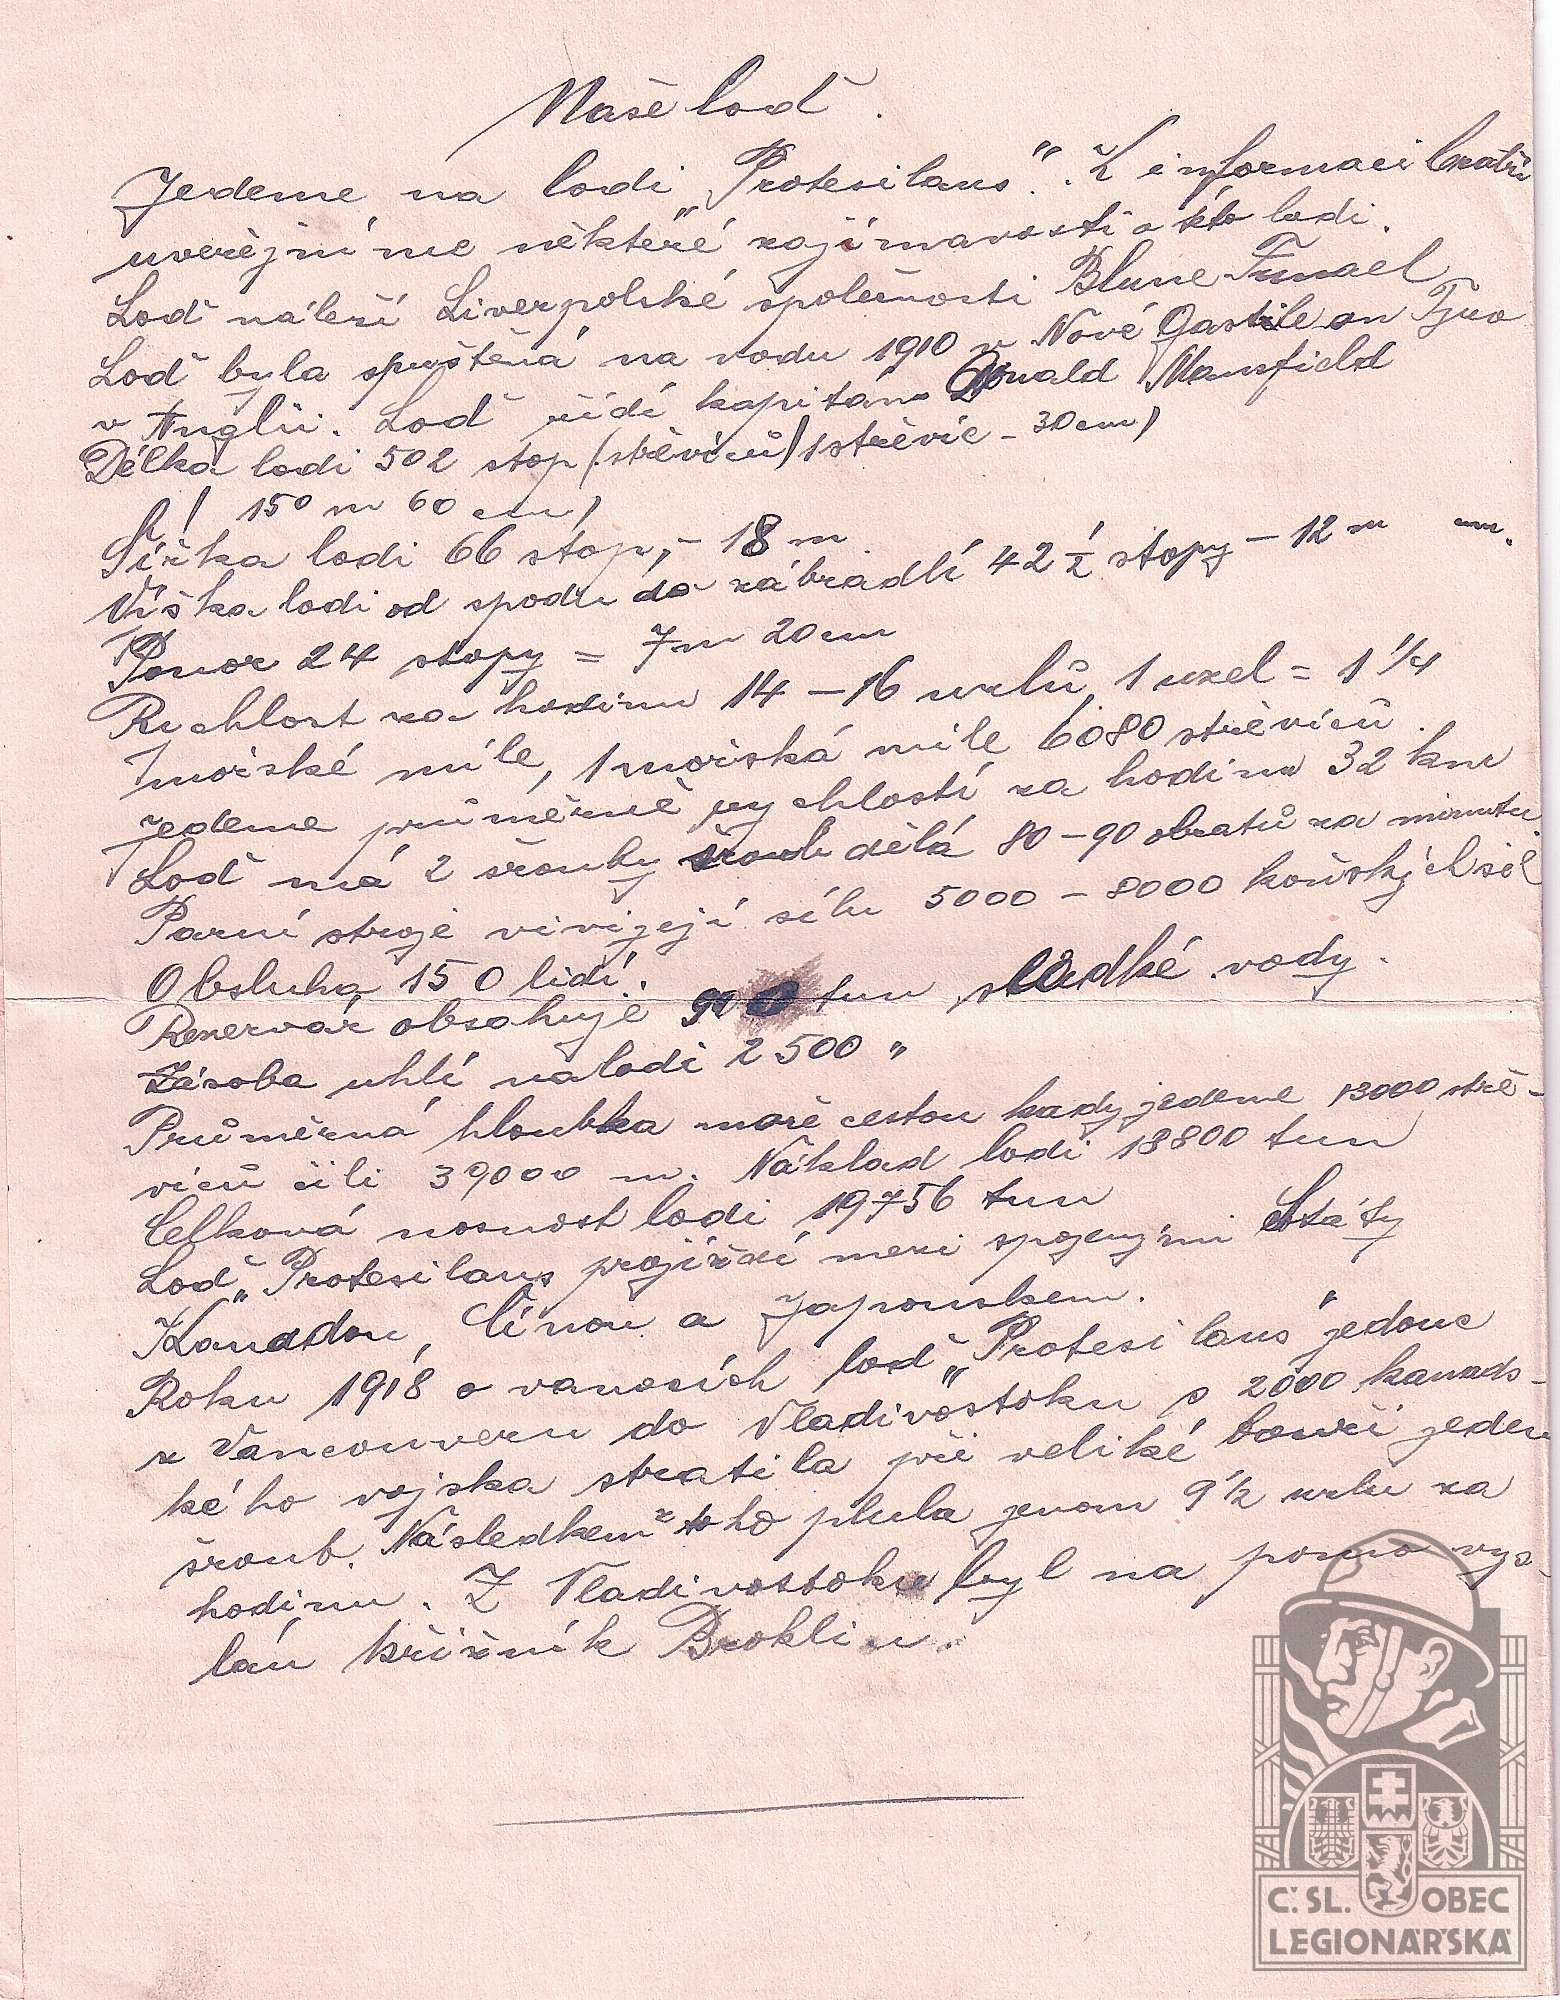 Naše loď.
Jedeme na lodi „Protesilaus". K informaci bratří
uveřejníme některé zajímavosti o této lodi.
Loď náleží Liverpolské společnosti Blune Funael
Loď byla spuštěná na vodu 1910 v Nové Gastile on Tyno
v Anglii. Loď řídí kapitán Donald Mansfield
Délka lodi 502 stop (střevíců) 1 střevíc - 30 cm)
( 150 m 60 cm)
Šířka lodi 66 stop, - 18 m.
Víška lodi od spodu do zábradlí 42 1/2 stopy - 12 m cm.
Ponor 24 stopy = 7 m 20 cm
Rychlost za hodinu 14 - 16 uzlů, 1 uzel = 1 1/4
mořské míle, 1 mořská míle 6080 střevíců.
Jedeme průměrně rychlostí za hodinu 32 km
Loď má 2 šrouby šroub dělá 80 - 90 obratů za minutu.
Parní stroje vivijejí sílu 5000 - 8000 koňských sil
Obsluha 150 lidí.
Rezervář obsahuje tun sladké vody.
Zásoba uhlí na lodi 2500 "
Průměrná hloubka moře cestou kady jedeme 13000 stře-
víců čili 39000 m. Náklad lodi 18800 tun
Celková nosnost lodi 19756 tun
Loď „Protesilaus projíždí mezi spojenými Státy
Kanadou, Čínou a Japonskem.
Roku 1918 o vanocích loď „Protesilaus" jedouc
z Vancouveru do Vladivostoku s 2000 kanads-
kého vojska stratila při veliké bouři jeden
šroub. Následkem toho plula jenom 9 1/2 uzlu za
hodinu. Z Vladivostoku byl na pomo vys-
lán křižník Broklin.
Č. SL. OBEC
LEGIONÁŘSKÁ